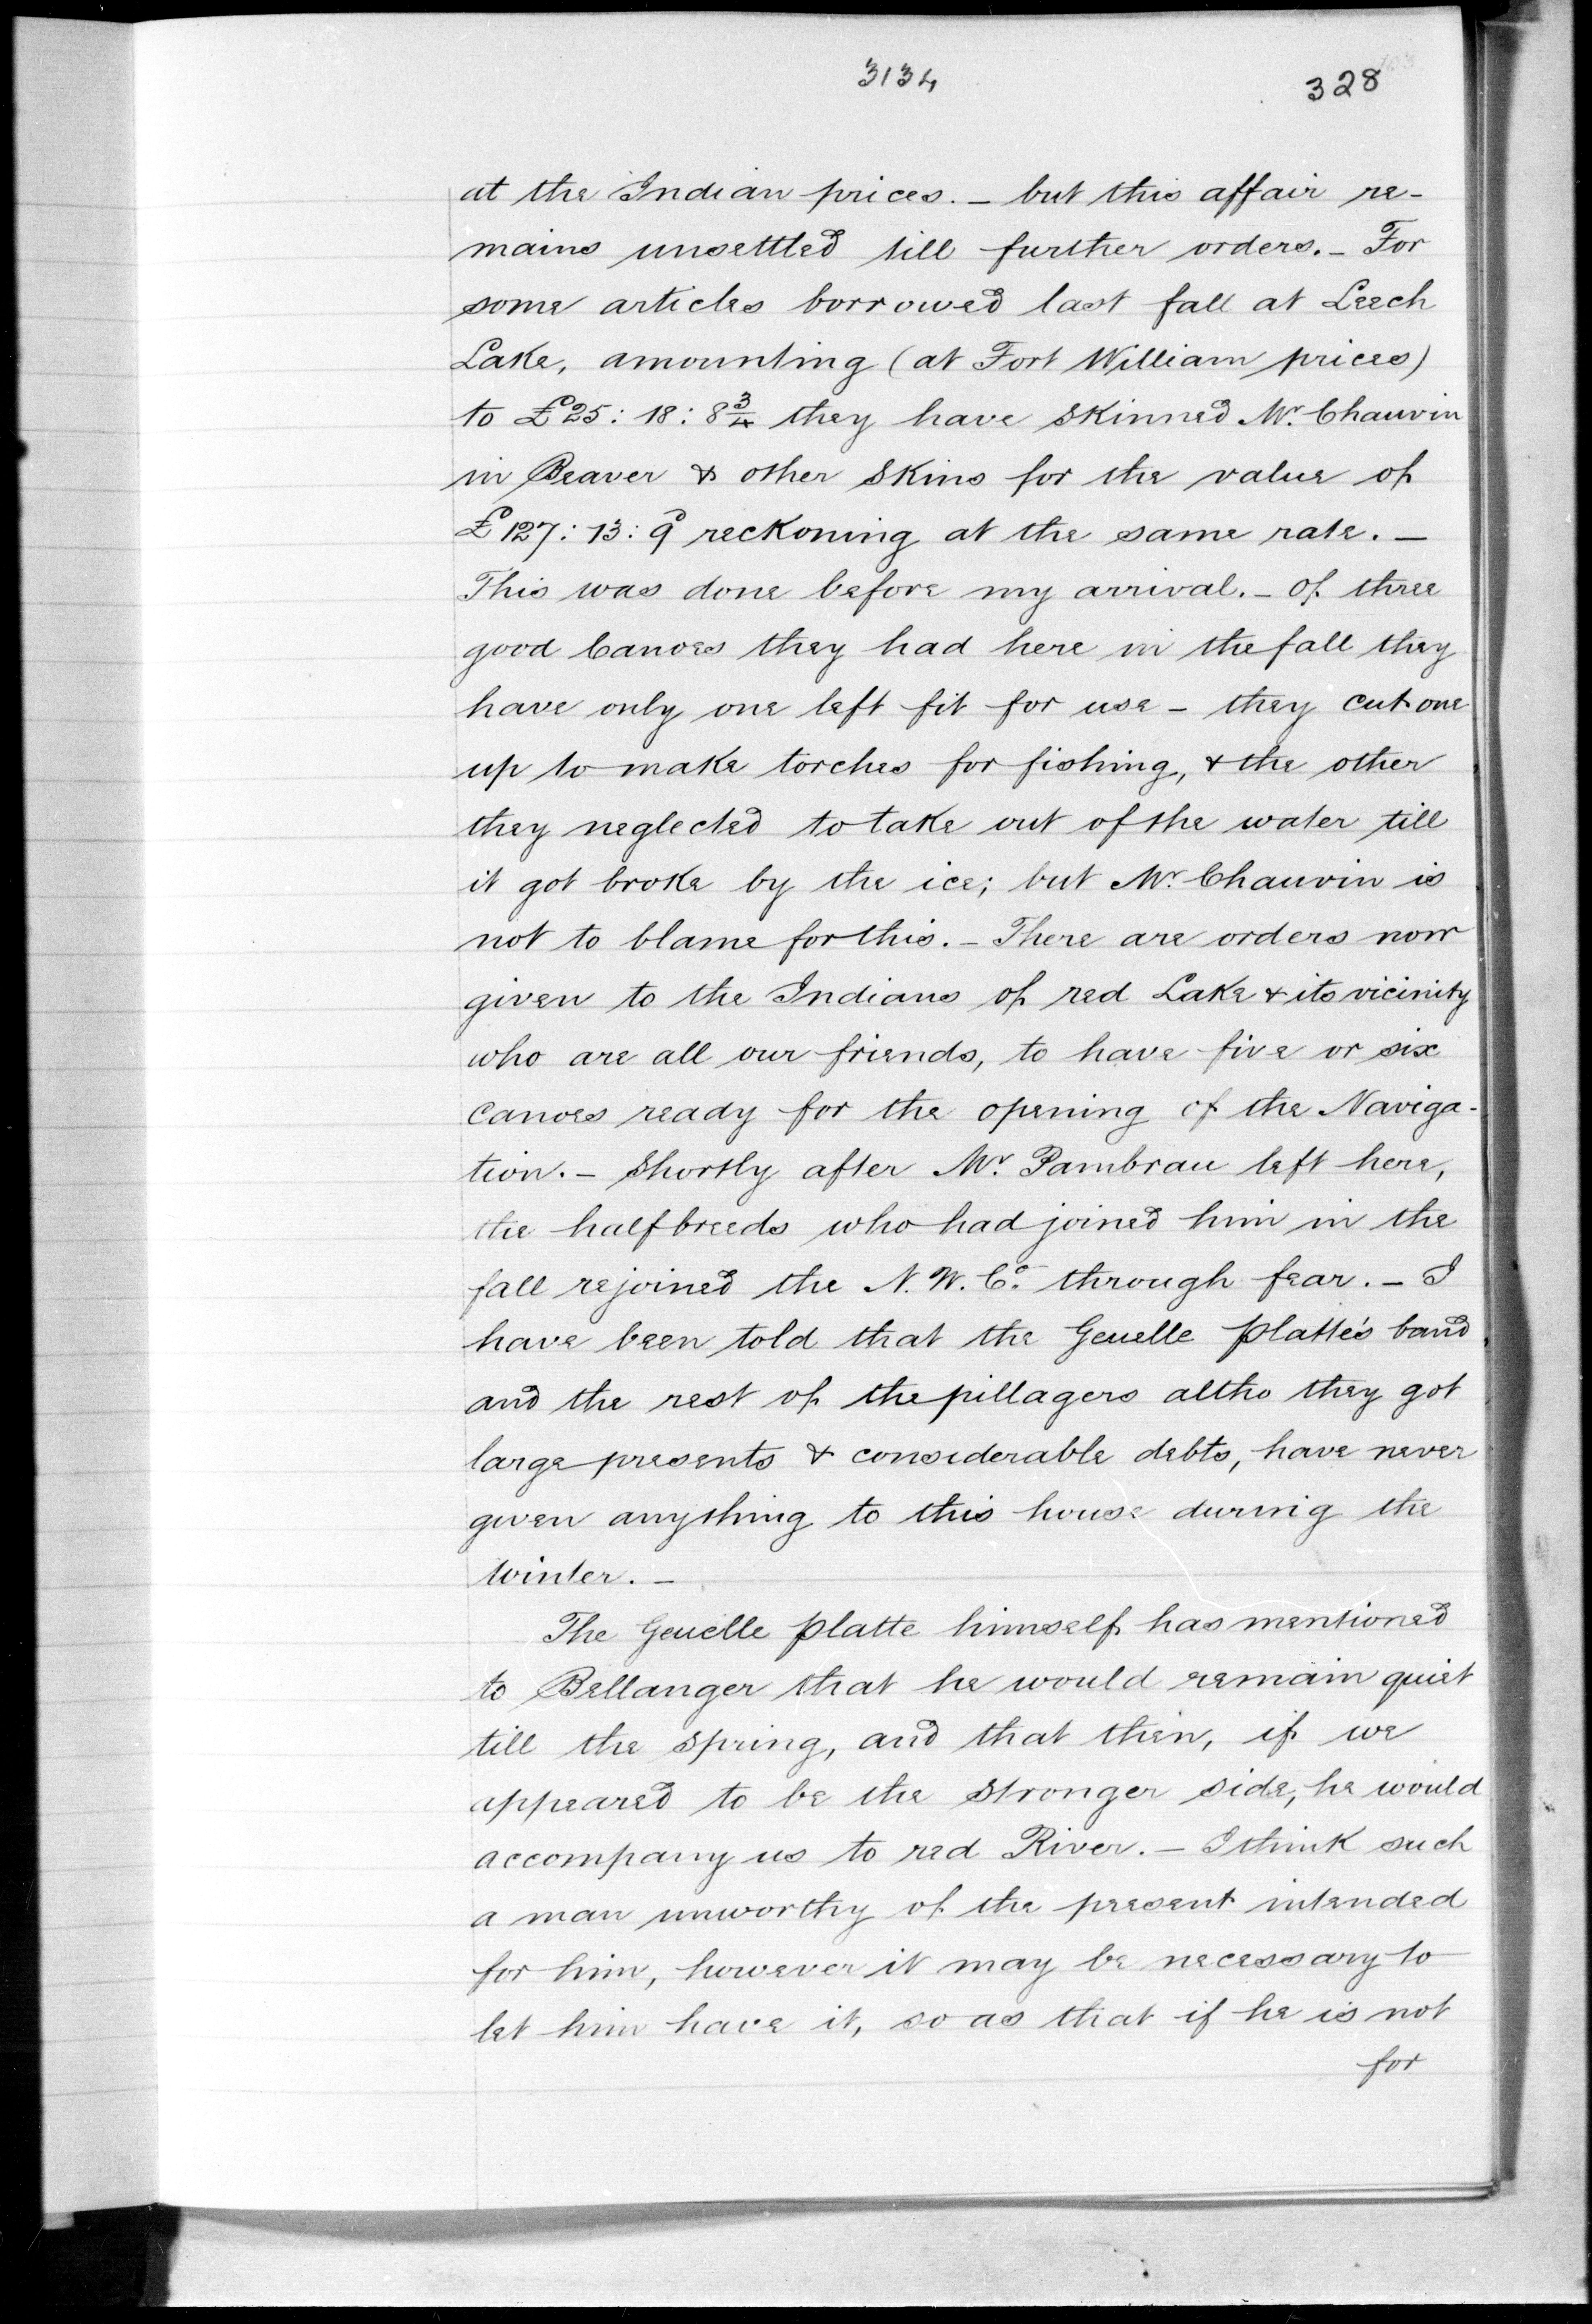 3134
328
at the Indian prices. — but this affair re-
mains unsettled till further orders. — For
some articles borrowed last fall at Leech
Lake, amounting (at Fort William prices)
to £25: 18: 8 3/4 they have skinned Mr. Chauvin
in Beaver & other skins for the value of
£127: 13: 9 reckoning at the same rate. —
This was done before my arrival. — Of three
good Canoes they had here in the fall they
have only one left fit for use — they cut one
up to make torches for fishing, & the other
they neglected to take out of the water till
it got broke by the ice; but Mr. Chauvin is
not to blame for this. — There are orders now
given to the Indians of red Lake & its vicinity
who are all our friends, to have five or six
canoes ready for the opening of the Naviga-
tion. — Shortly after Mr. Pambrau left here,
the halfbreeds who had joined him in the
fall rejoined the N. W. Co. through fear. — I
have been told that the Geuelle platte's band
and the rest of the pillagers altho they got
large presents & considerable debts, have never
given anything to this house during the
winter. —
The Geuelle platte himself has mentioned
to Bellanger that he would remain quiet
till the spring, and that then, if we
appeared to be the stronger side, he would
accompany us to red River. — I think such
a man unworthy of the present intended
for him, however it may be necessary to
let him have it, so as that if he is not
for